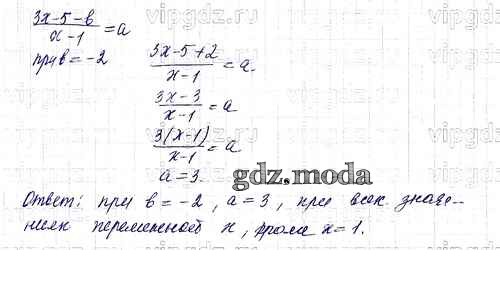 (3x-5-в)/(x-1) = a
при в = -2 (3x-5+2)/(x-1) = a.
(3x-3)/(x-1) = a
3(x-1)/(x-1) = a
a = 3.
gdz.moda
Ответ: при в = -2, a = 3, при всех значе-
ниях переменной x, кроме x = 1.
vipgdz.ru